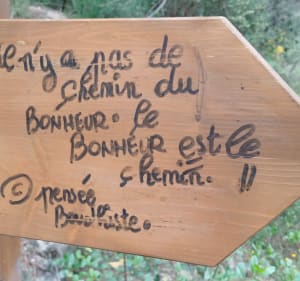 il n'y a pas de
chemin du
BONHEUR. le
BONHEUR est le
chemin. !!
© pensée
Bouddhiste.